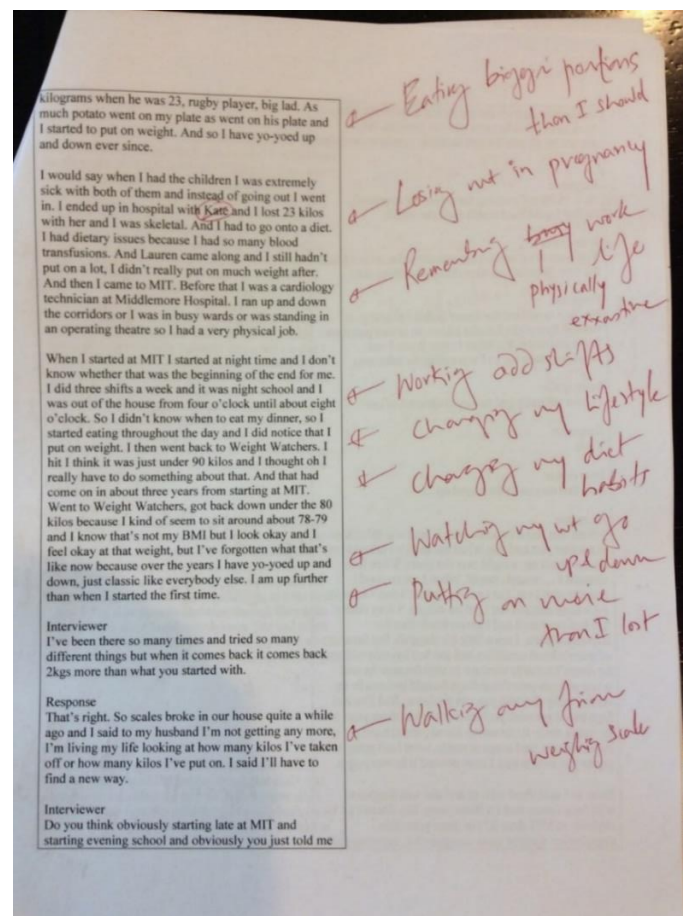 kilograms when he was 23, rugby player, big lad. As
much potato went on my plate as went on his plate and
I started to put on weight. And so I have yo-yoed up
and down ever since.
I would say when I had the children I was extremely
sick with both of them and instead of going out I went
in. I ended up in hospital with Kate and I lost 23 kilos
with her and I was skeletal. And I had to go onto a diet.
I had dietary issues because I had so many blood
transfusions. And Lauren came along and I still hadn't
put on a lot, I didn't really put on much weight after.
And then I came to MIT. Before that I was a cardiology
technician at Middlemore Hospital. I ran up and down
the corridors or I was in busy wards or was standing in
an operating theatre so I had a very physical job.
When I started at MIT I started at night time and I don't
know whether that was the beginning of the end for me.
I did three shifts a week and it was night school and I
was out of the house from four o'clock until about eight
o'clock. So I didn't know when to eat my dinner, so I
started eating throughout the day and I did notice that I
put on weight. I then went back to Weight Watchers. I
hit I think it was just under 90 kilos and I thought oh I
really have to do something about that. And that had
come on in about three years from starting at MIT.
Went to Weight Watchers, got back down under the 80
kilos because I kind of seem to sit around about 78-79
and I know that's not my BMI but I look okay and I
feel okay at that weight, but I've forgotten what that's
like now because over the years I have yo-yoed up and
down, just classic like everybody else. I am up further
than when I started the first time.
Interviewer
I've been there so many times and tried so many
different things but when it comes back it comes back
2kgs more than what you started with.
Response
That's right. So scales broke in our house quite a while
ago and I said to my husband I'm not getting any more,
I'm living my life looking at how many kilos I've taken
off or how many kilos I've put on. I said I'll have to
find a new way.
Interviewer
Do you think obviously starting late at MIT and
starting evening school and obviously you just told me
Eating bigger portions
than I should
Losing wt in pregnancy
Remembering busy work
life
physically
exxastive
Working odd shifts
Changing my lifestyle
Changing my diet
habits
Watching my wt go
up & down
Putting on more
than I lost
Walking away from
weighing scale